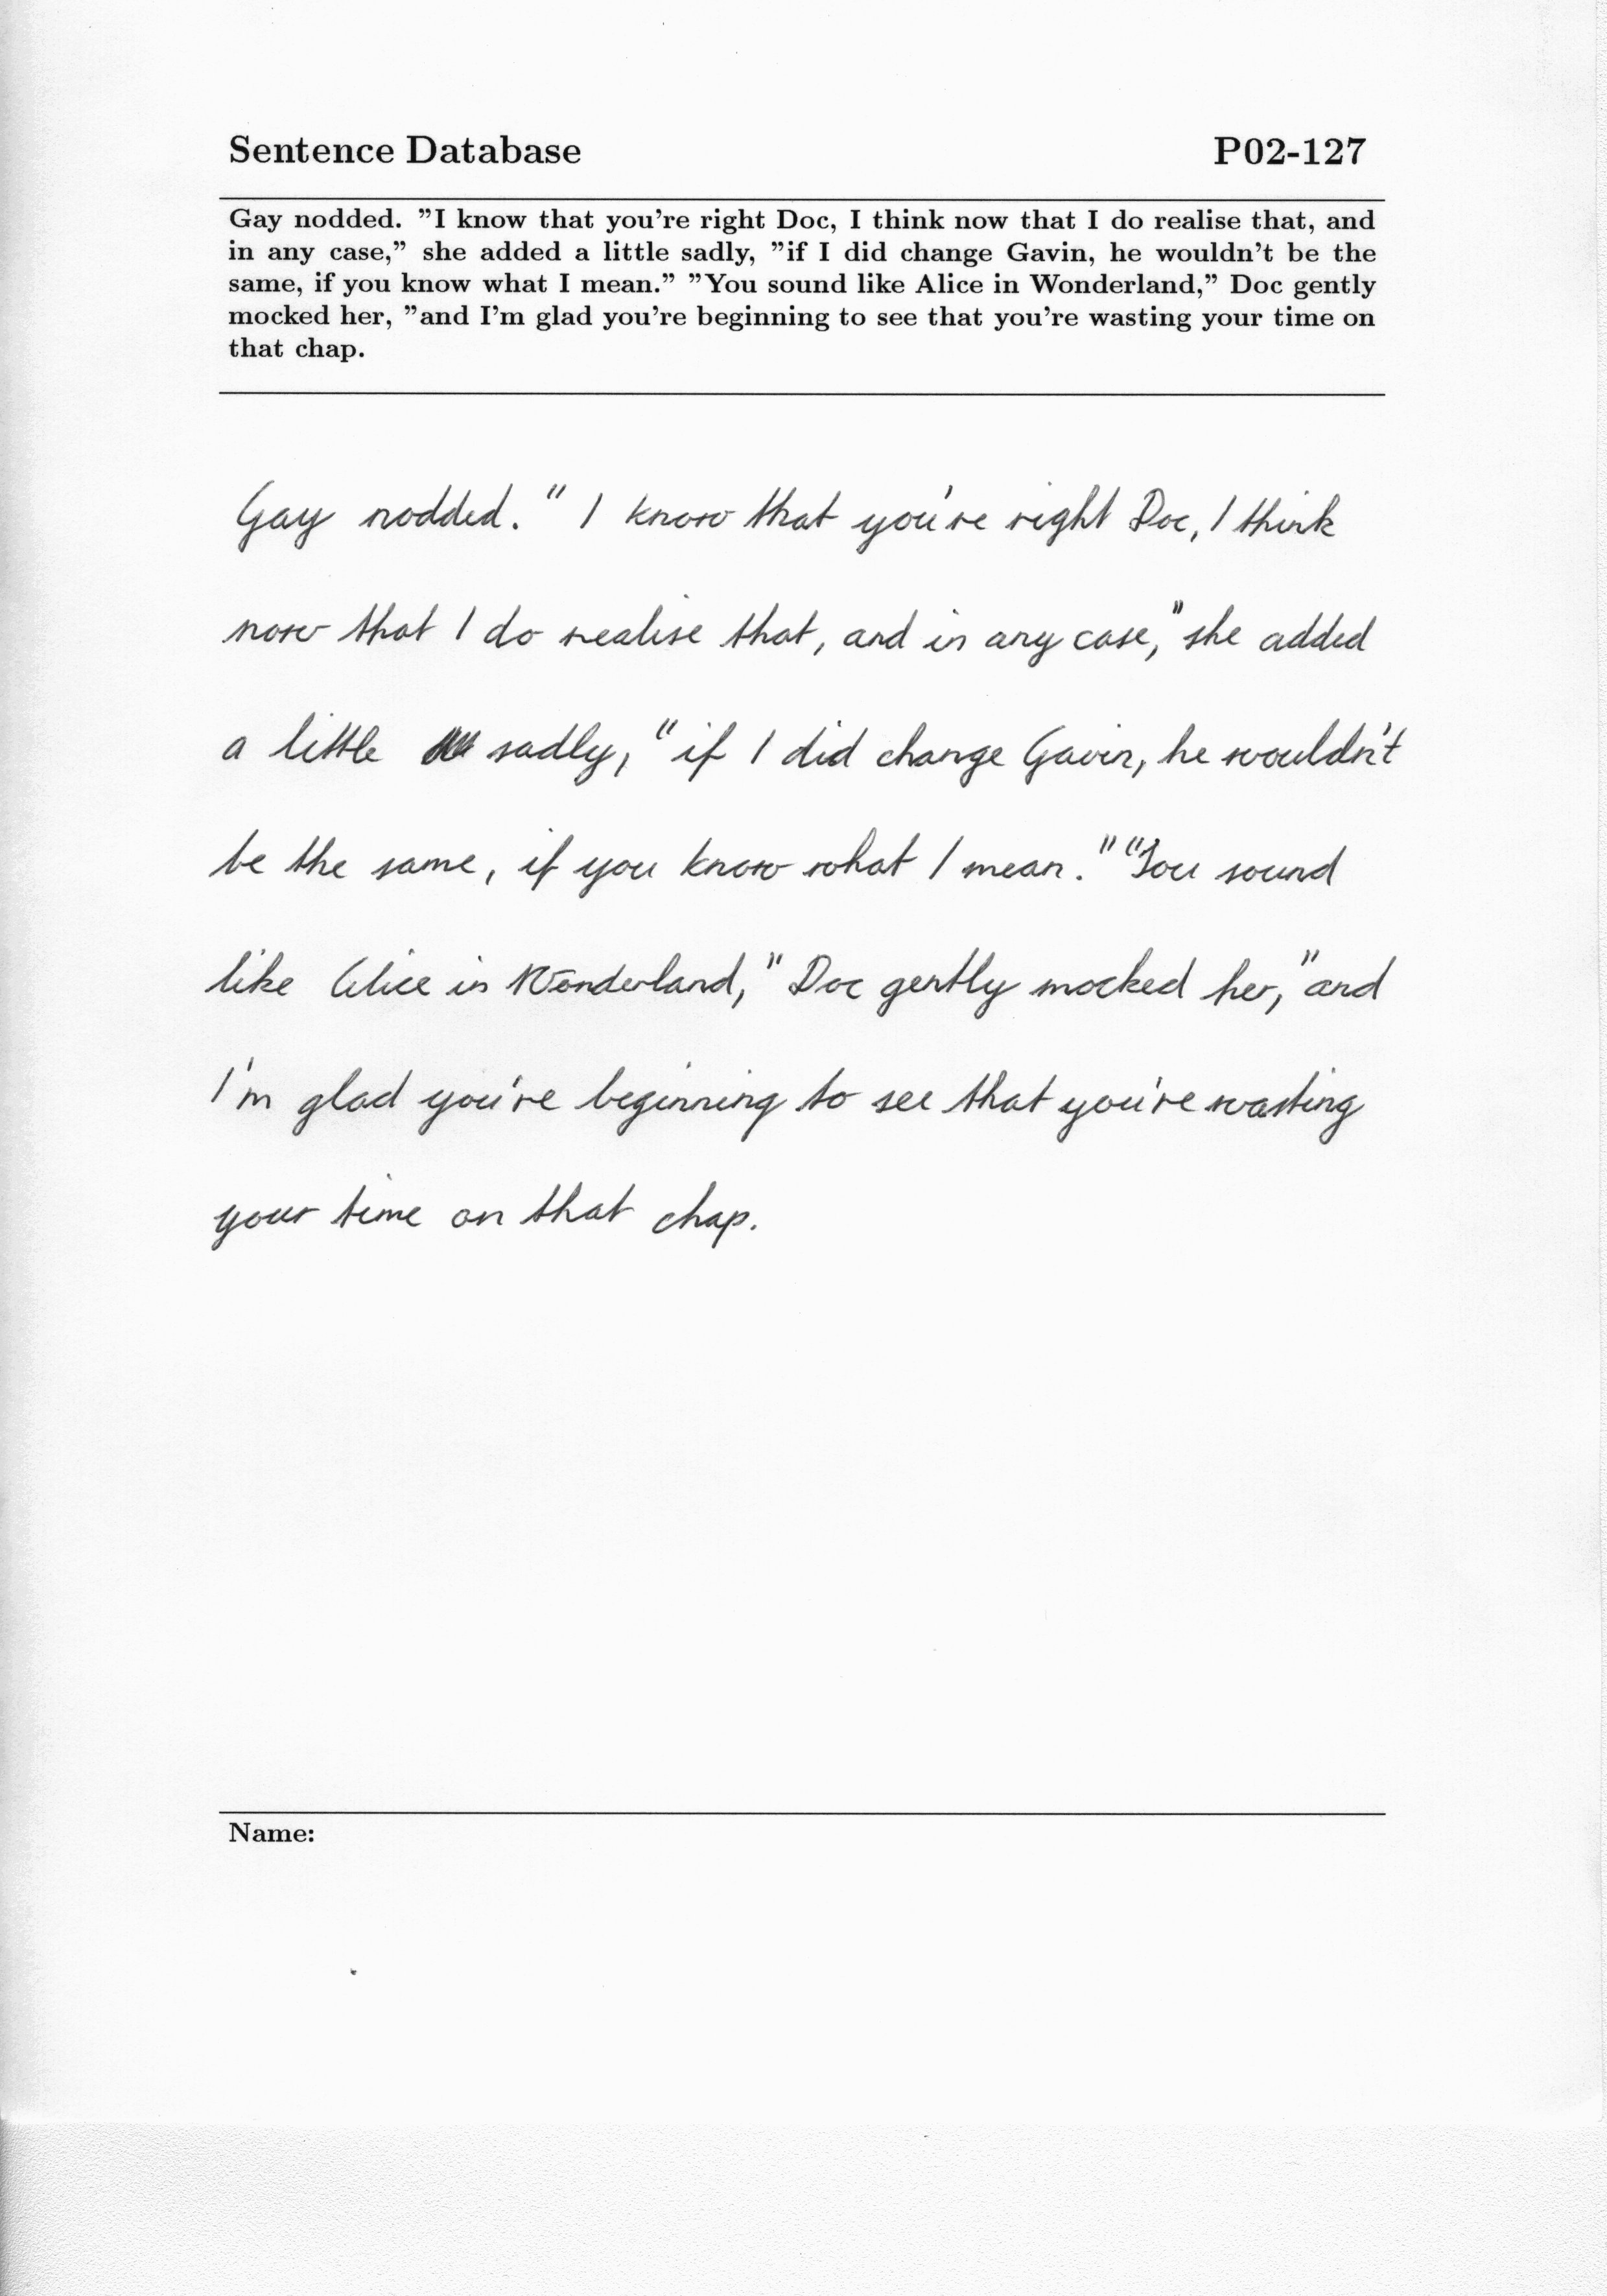 Sentence Database P02-127
Gay nodded. ”I know that you’re right Doc, I think now that I do realise that, and
in any case,” she added a little sadly, ”if I did change Gavin, he wouldn’t be the
same, if you know what I mean.” ”You sound like Alice in Wonderland,” Doc gently
mocked her, ”and I’m glad you’re beginning to see that you’re wasting your time on
that chap.
Gay nodded. " I know that you're right Doc, I think
now that I do realise that, and in any case," she added
a little sadly, "if I did change Gavin, he wouldn't
be the same, if you know what I mean." "You sound
like Alice in Wonderland," Doc gently mocked her, "and
I'm glad you're beginning to see that you're wasting
your time on that chap.
Name: